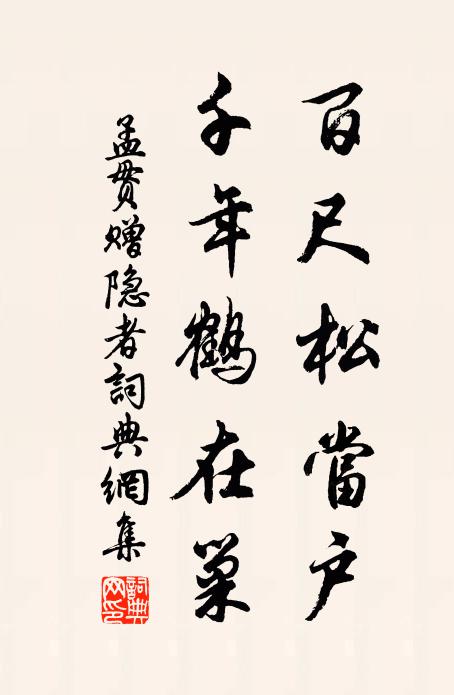 百尺松當户
千年鶴在巢
孟贯赠隐者詞典網集
詞典网印